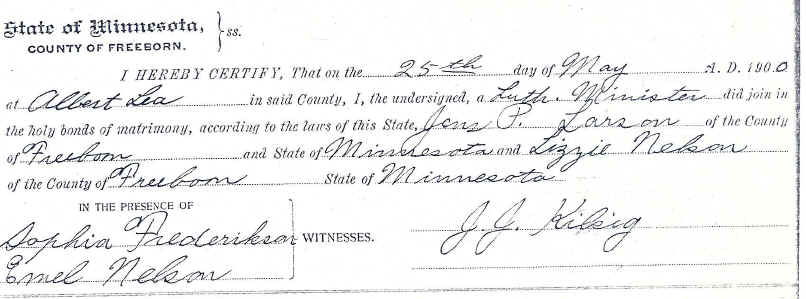 State of Minnesota, } ss.
COUNTY OF FREEBORN.
I HEREBY CERTIFY, That on the 25th day of May A. D. 1900
at Albert Lea in said County, I, the undersigned, a Luth. Minister did join in
the holy bonds of matrimony, according to the laws of this State, Jens P. Larson of the County
of Freeborn and State of Minnesota and Lizzie Nelson
of the County of Freeborn State of Minnesota
IN THE PRESENCE OF
Sophia Frederikson } WITNESSES. J. J. Kilsig
Emel Nelson